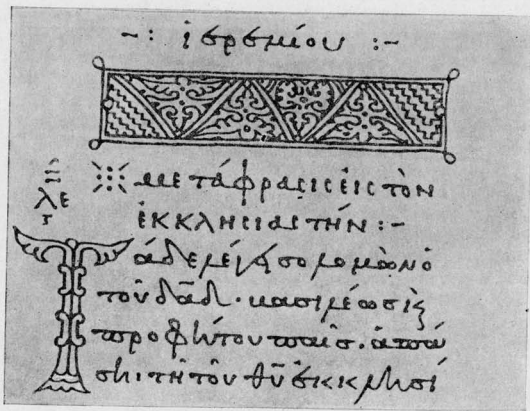 -: ἱερεμίου :-
μετάφρασις εἰς τὸν
ἐκκλησιαστήν :-
Τάδε λέγει σολομὼν ὁ
τοῦ δᾱδ · βασιλέως καὶ
προφήτου παῖς · ἁπά
σηι · τῆ τοῦ θῡ ἐκκλησί